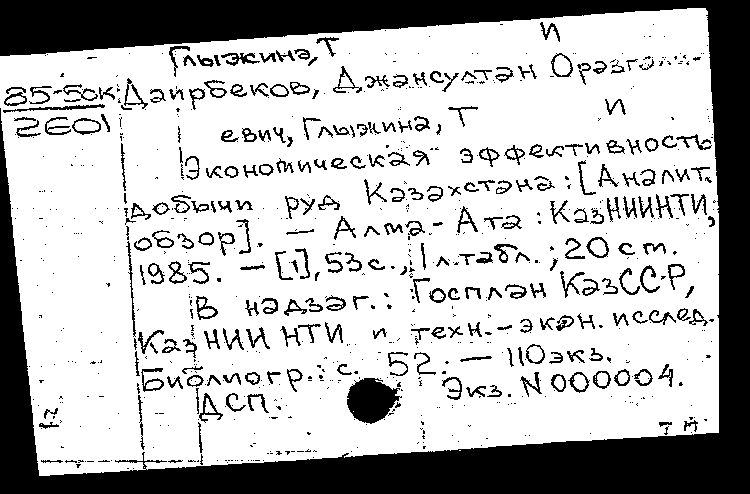 Глыжина, Т И
85-50К Даирбеков, Джансултан Оразгали-
2601 евич, Глыжина, Т И
Экономическая эффективность
добычи руд Казахстана: [Аналит.
обзор]. — Алма-Ата: КазНИИНТИ,
1985. — [1], 53 с., 1 л. табл.; 20 см.
В надзаг.: Госплан КазССР,
КазНИИ НТИ и техн.-экон. исслед.
Библиогр.: с. 52. — 110 экз.
ДСП. Экз. N 000004.